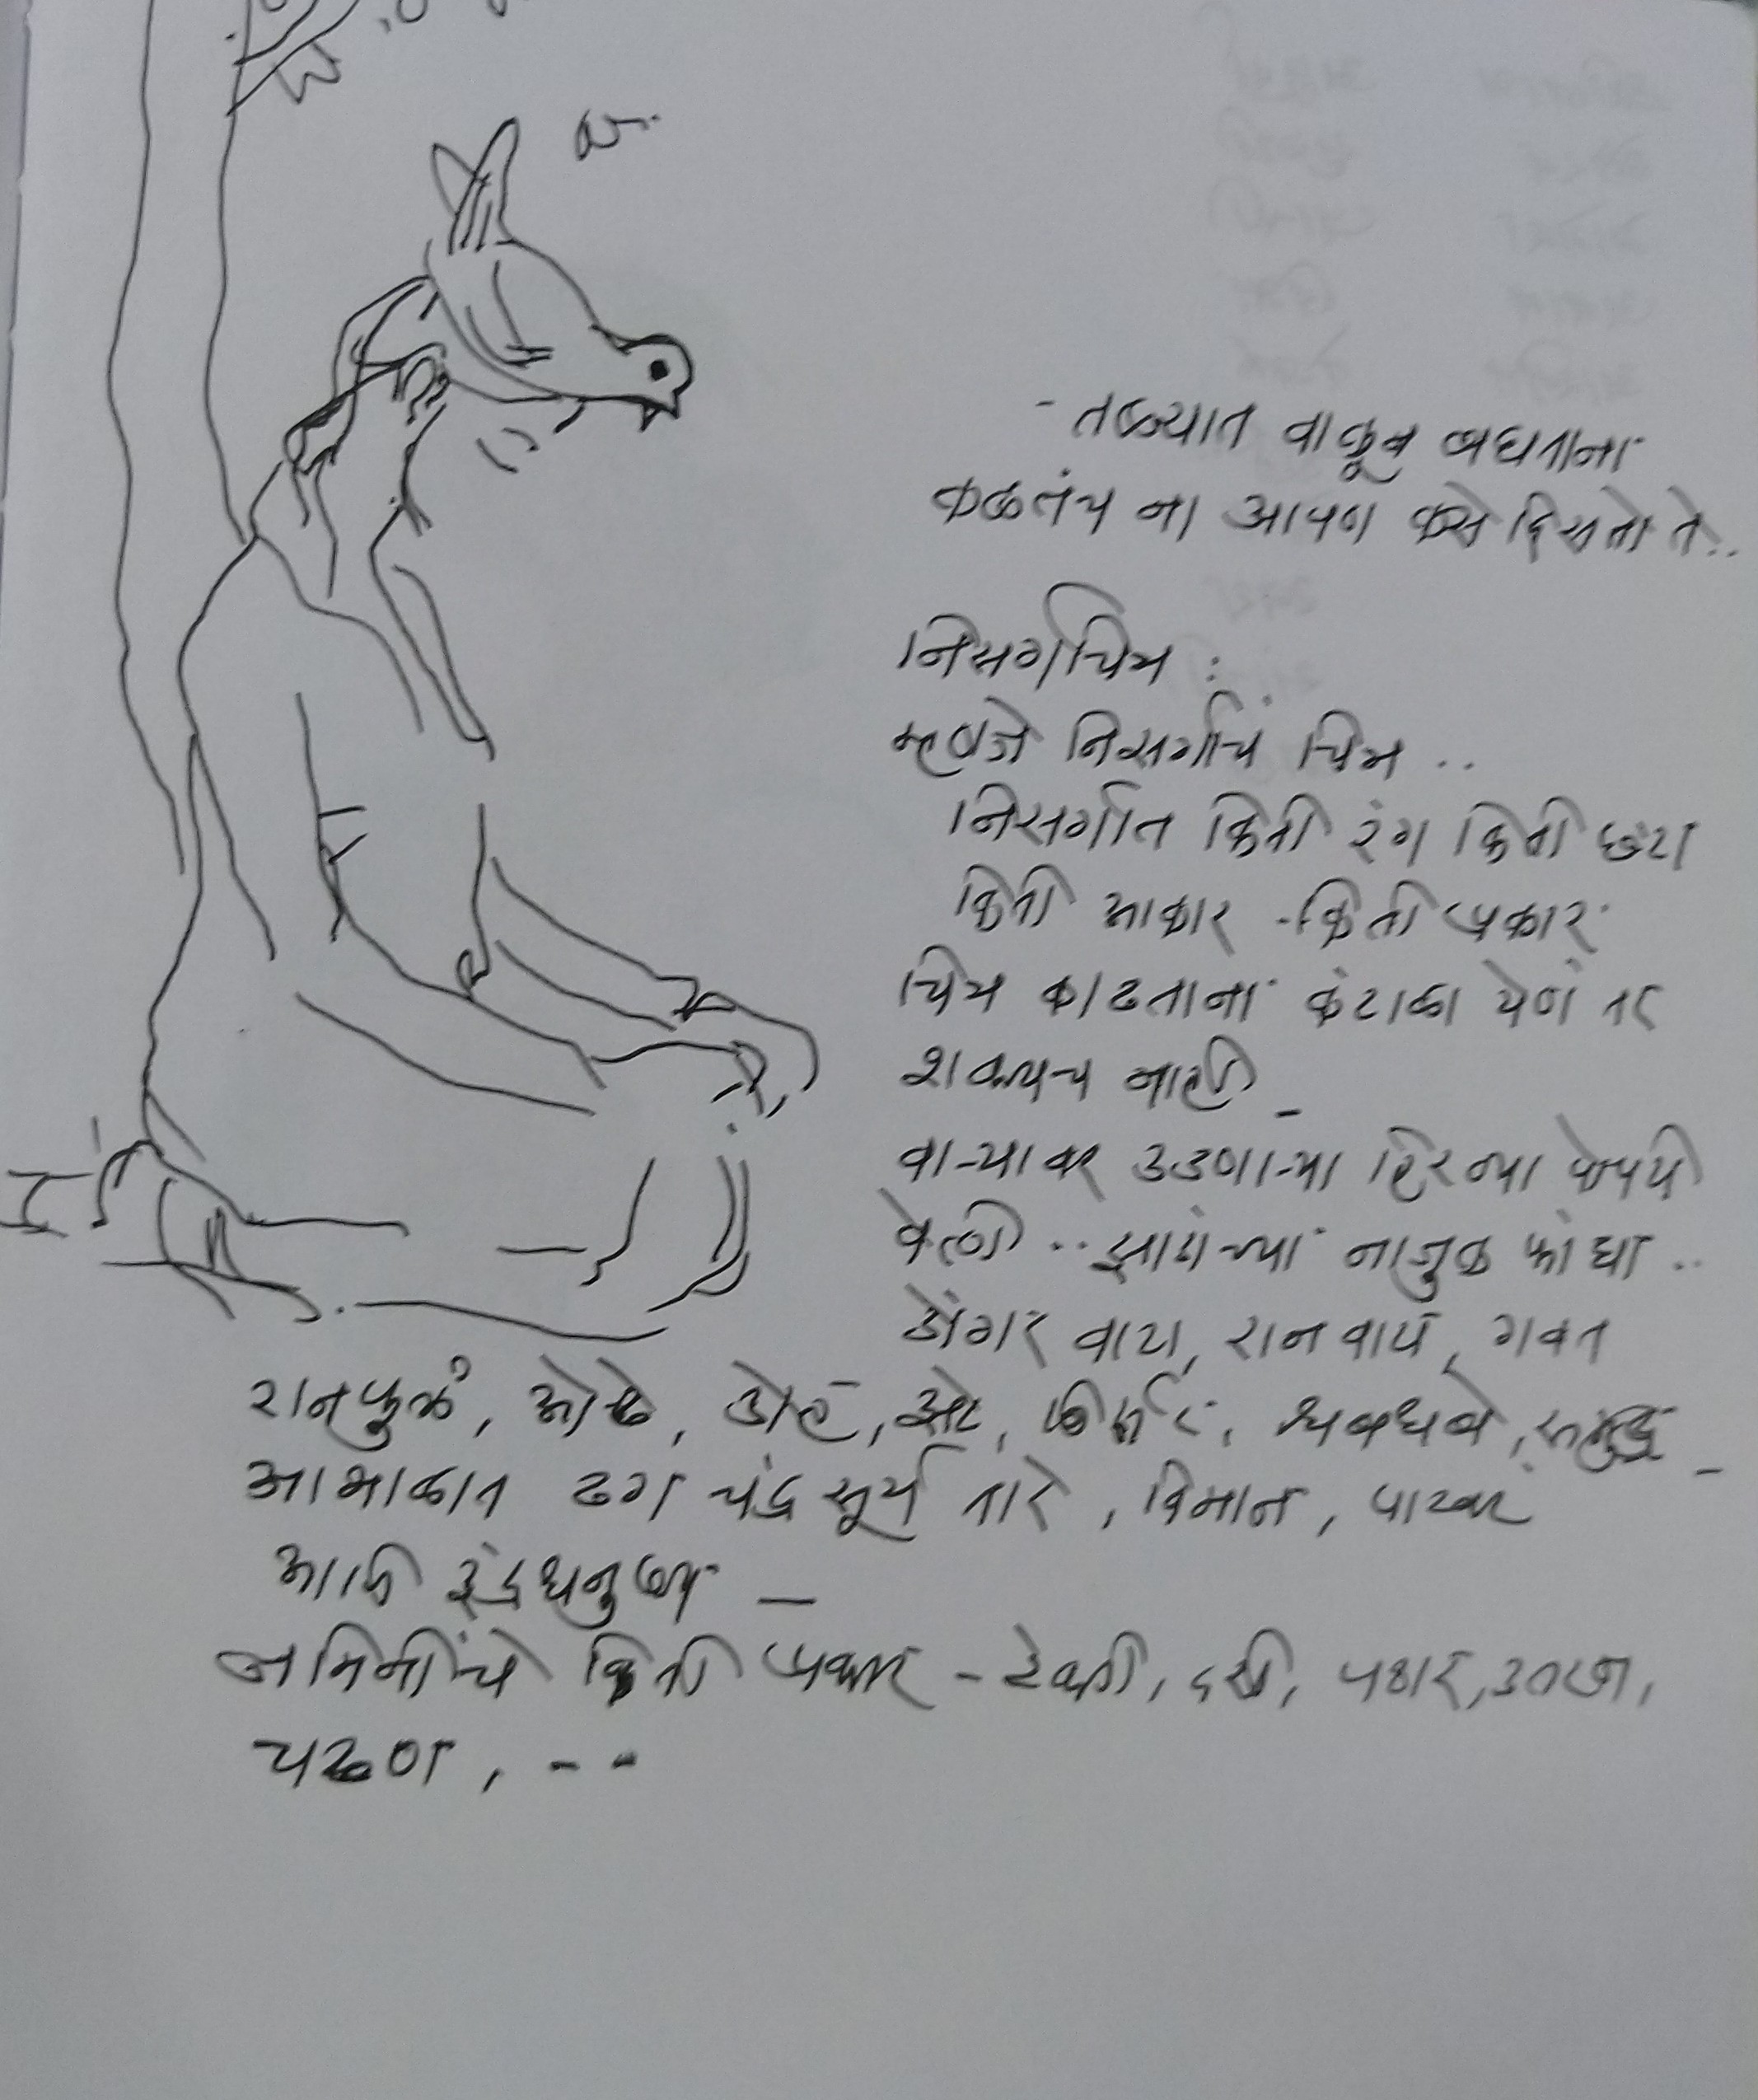 - तळ्यात वाकून बघताना
कळतंय ना आपण कसे दिसतो ते..
निसर्गचित्र :
म्हणजे निसर्गाचं चित्र ..
निसर्गात किती रंग किती छटा
किती आकार - किती प्रकार
चित्र काढताना कंटाळा येणं तर
शक्यच नाही _
वाऱ्यावर उडणाऱ्या हिरव्या
वेली .. झाडांच्या नाजुक फांद्या ..
डोंगर वाटा, रानवाटं, गवत
रानफुलं, ओढे, डोह, , , धबधबे, समुद्र _
आभाळात ढग चंद्र सूर्य तारे, विमान, पाखरं
आणि इंद्रधनुष्य _
जमिनीचे किती प्रकार - टेकडी, दरी, पठार, उतार,
चढण, - -